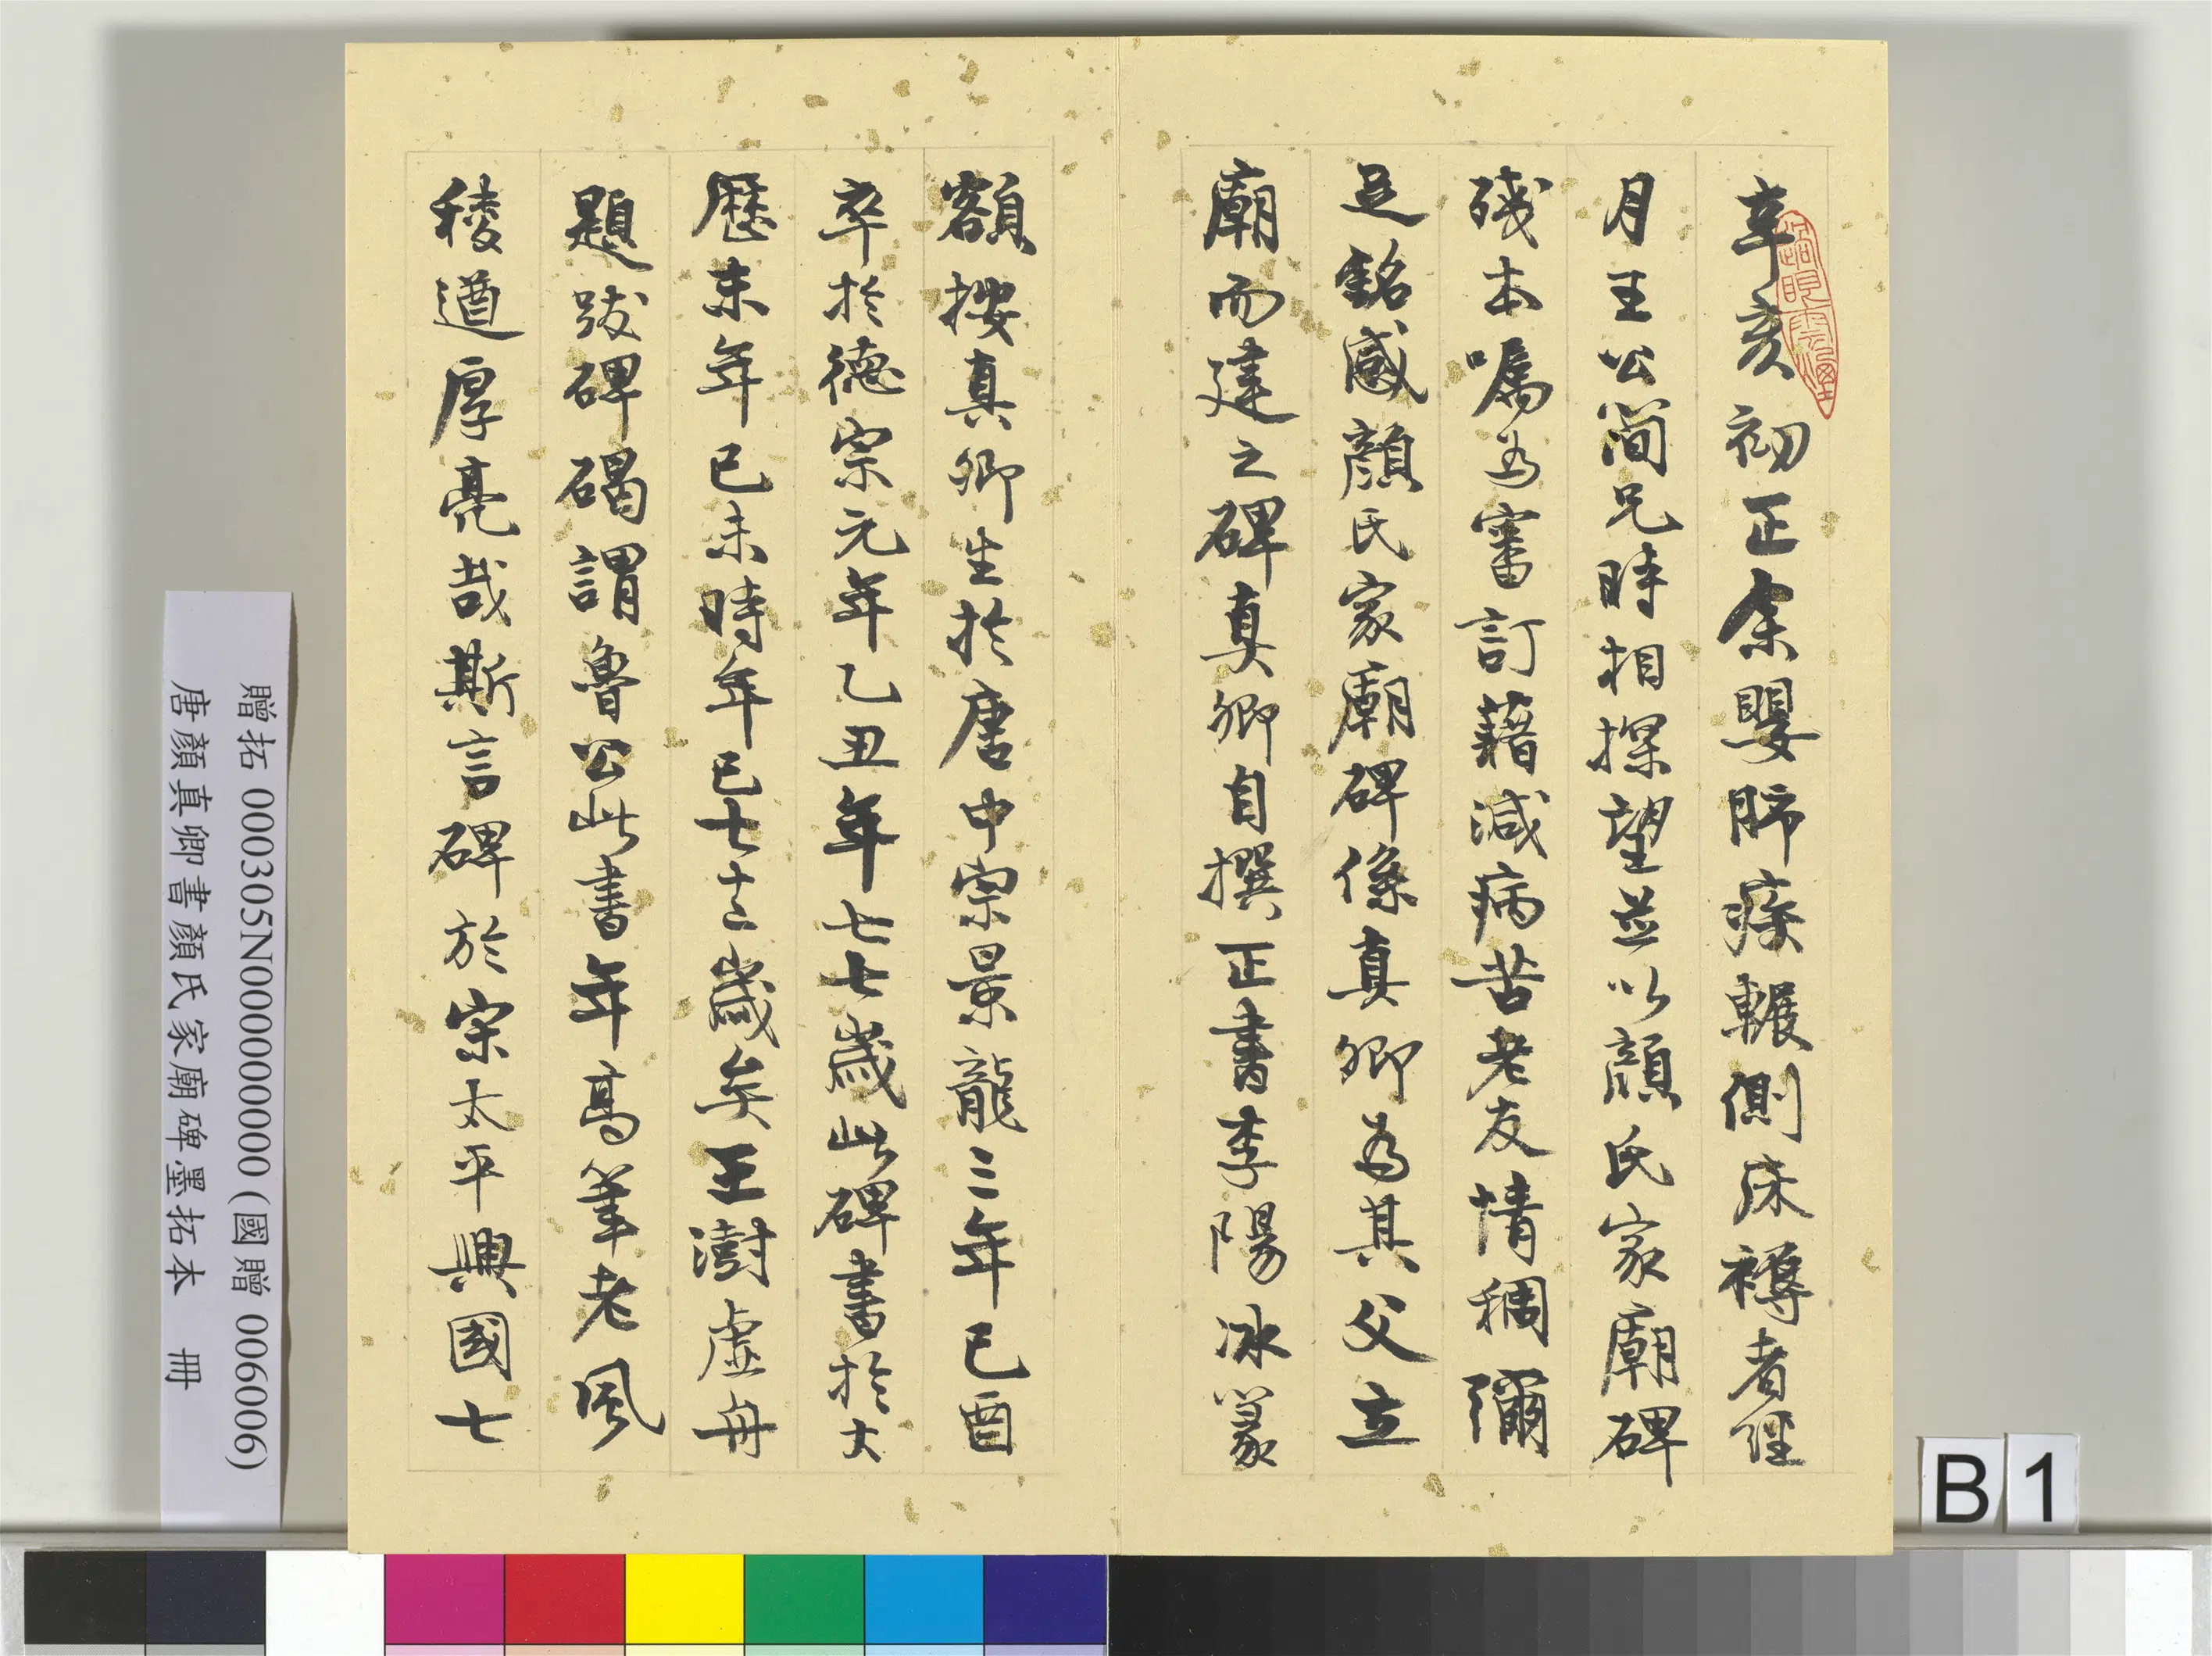 辛亥初正余嬰肺疾輾側床褥者經
月王公簡兄時相探望並以顏氏家廟碑
殘本囑為審訂藉減病苦老友情稠彌
足銘感顏氏家廟碑係真卿為其父立
廟而建之碑真卿自撰正書李陽冰篆
額按真卿生於唐中宗景龍三年已酉
卒於德宗元年乙丑年七七歲此碑書於大
歷末年已未時年已七十二歲矣王澍虛舟
題跋碑碣謂魯公此書年高筆老風
稜遒厚亮哉斯言碑於宋太平興國七
贈拓 000305N000000000 (國贈 006006)
唐顏真卿書顏氏家廟碑墨拓本 冊
B 1